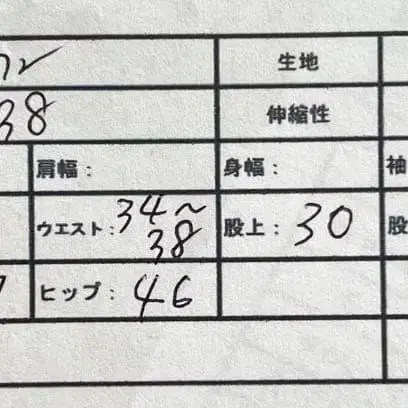 生地
38
伸縮性
肩幅：
身幅：
袖
ウエスト：34～38
股上：30
股
ヒップ：46